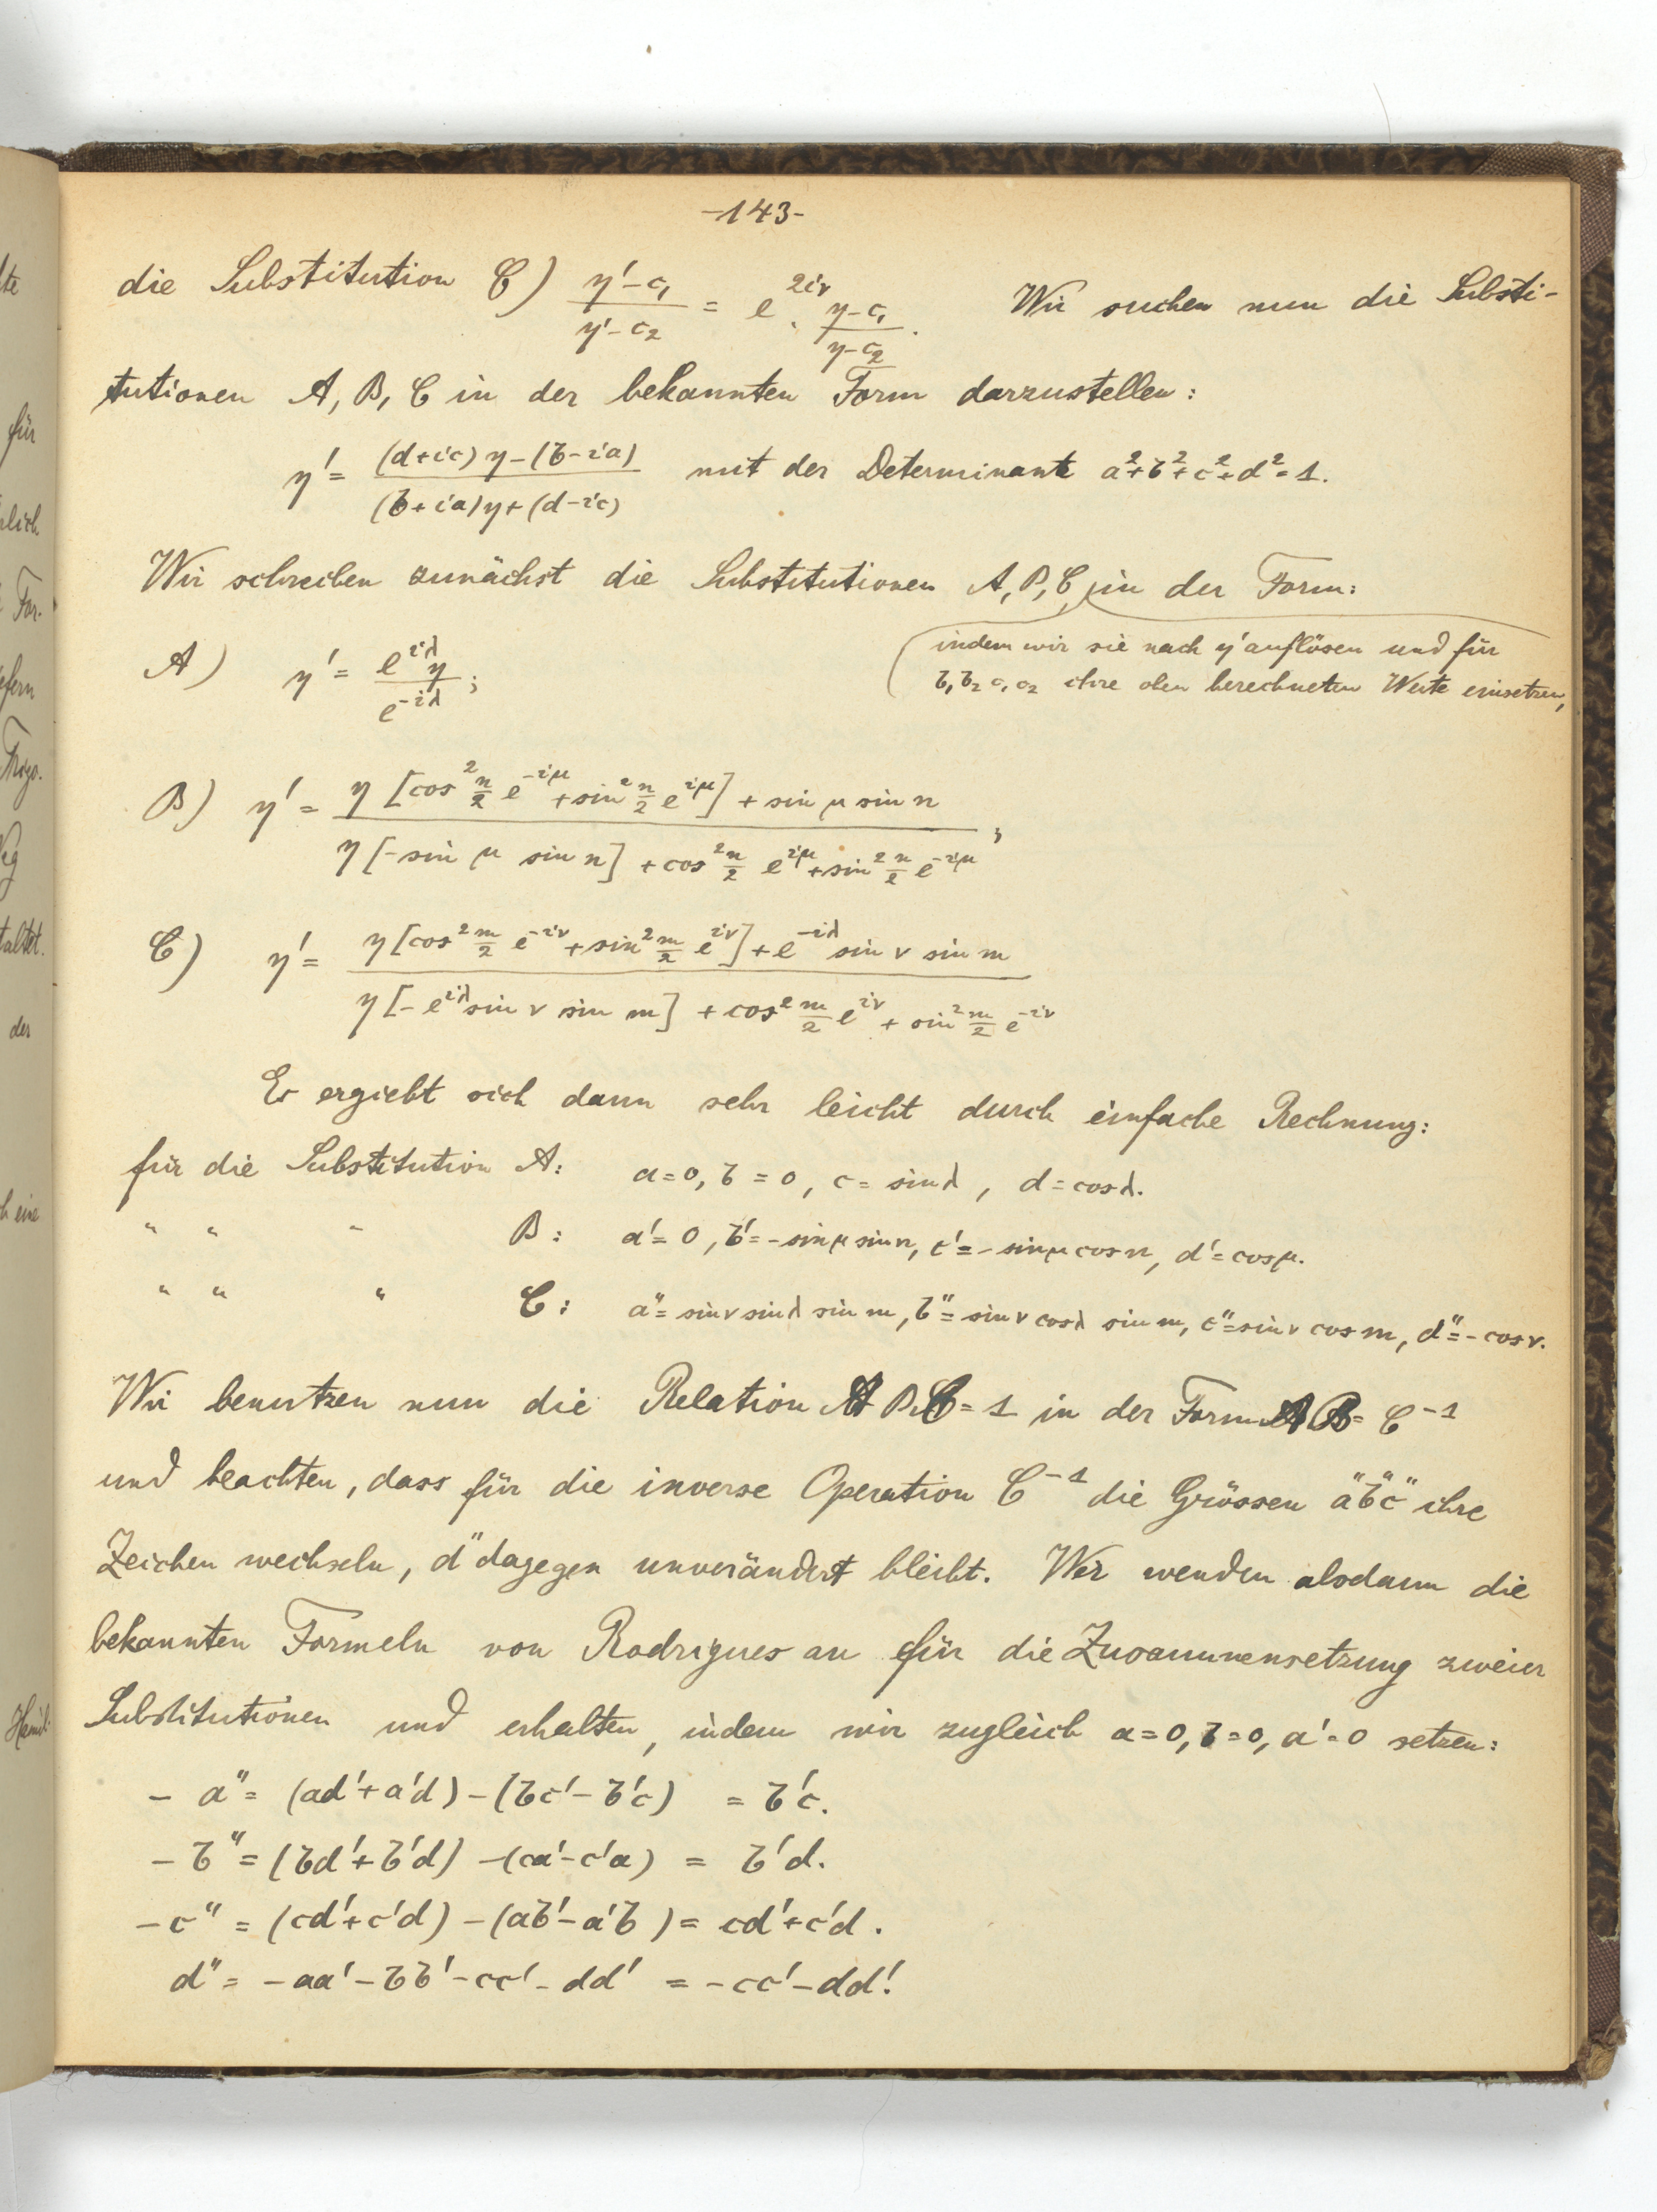 -143-
die Substitution C) (η'-c₁)/(η'-c₂) = e^{2iν} · (η-c₁)/(η-c₂). Wir suchen nun die Substi-
tutionen A, B, C in der bekannten Form darzustellen:
η' = ((d+ic)η-(b-ia))/((b+ia)η+(d-ic)) mit der Determinante a²+b²+c²+d²=1.
Wir schreiben zunächst die Substitutionen A, B, C, in der Form:
indem wir sie nach η' auflösen und für
b₁ b₂ c₁ c₂ ihre oben berechneten Werte einsetzen,
A) η' = (e^{iλ} η)/(e^{-iλ});
B) η' = (η [cos² n/2 e^{-iμ} + sin² n/2 e^{iμ}] + sin μ sin n)/(η [-sin μ sin n] + cos² n/2 e^{iμ} + sin² n/2 e^{-iμ});
C) η' = (η [cos² m/2 e^{-iν} + sin² m/2 e^{iν}] + e^{-iλ} sin ν sin m)/(η [-e^{iλ} sin ν sin m] + cos² m/2 e^{iν} + sin² m/2 e^{-iν})
Es ergiebt sich dann sehr leicht durch einfache Rechnung:
für die Substitution A: a=0, b=0, c= sin λ, d=cos λ.
" " " B: a'=0, b'=-sin μ sin n, c'=-sin μ cos n, d'=cos μ.
" " " C: a"= sin ν sin λ sin m, b"= sin ν cos λ sin m, c"=sin ν cos m, d"=-cos ν.
Wir benutzen nun die Relation A B C = 1 in der Form A B = C⁻¹
und beachten, dass für die inverse Operation C⁻¹ die Grössen a" b" c" ihre
Zeichen wechseln, d" dagegen unverändert bleibt. Wir wenden alsdann die
bekannten Formeln von Rodrigues an für die Zusammensetzung zweier
Substitutionen und erhalten, indem wir zugleich a=0, b=0, a'=0 setzen:
- a" = (ad'+a'd)-(bc'-b'c) = b'c.
- b" = (bd'+b'd)-(ca'-c'a) = b'd.
- c" = (cd'+c'd)-(ab'-a'b) = cd'+c'd.
d" = -aa'-bb'-cc'-dd' = -cc'-dd'.